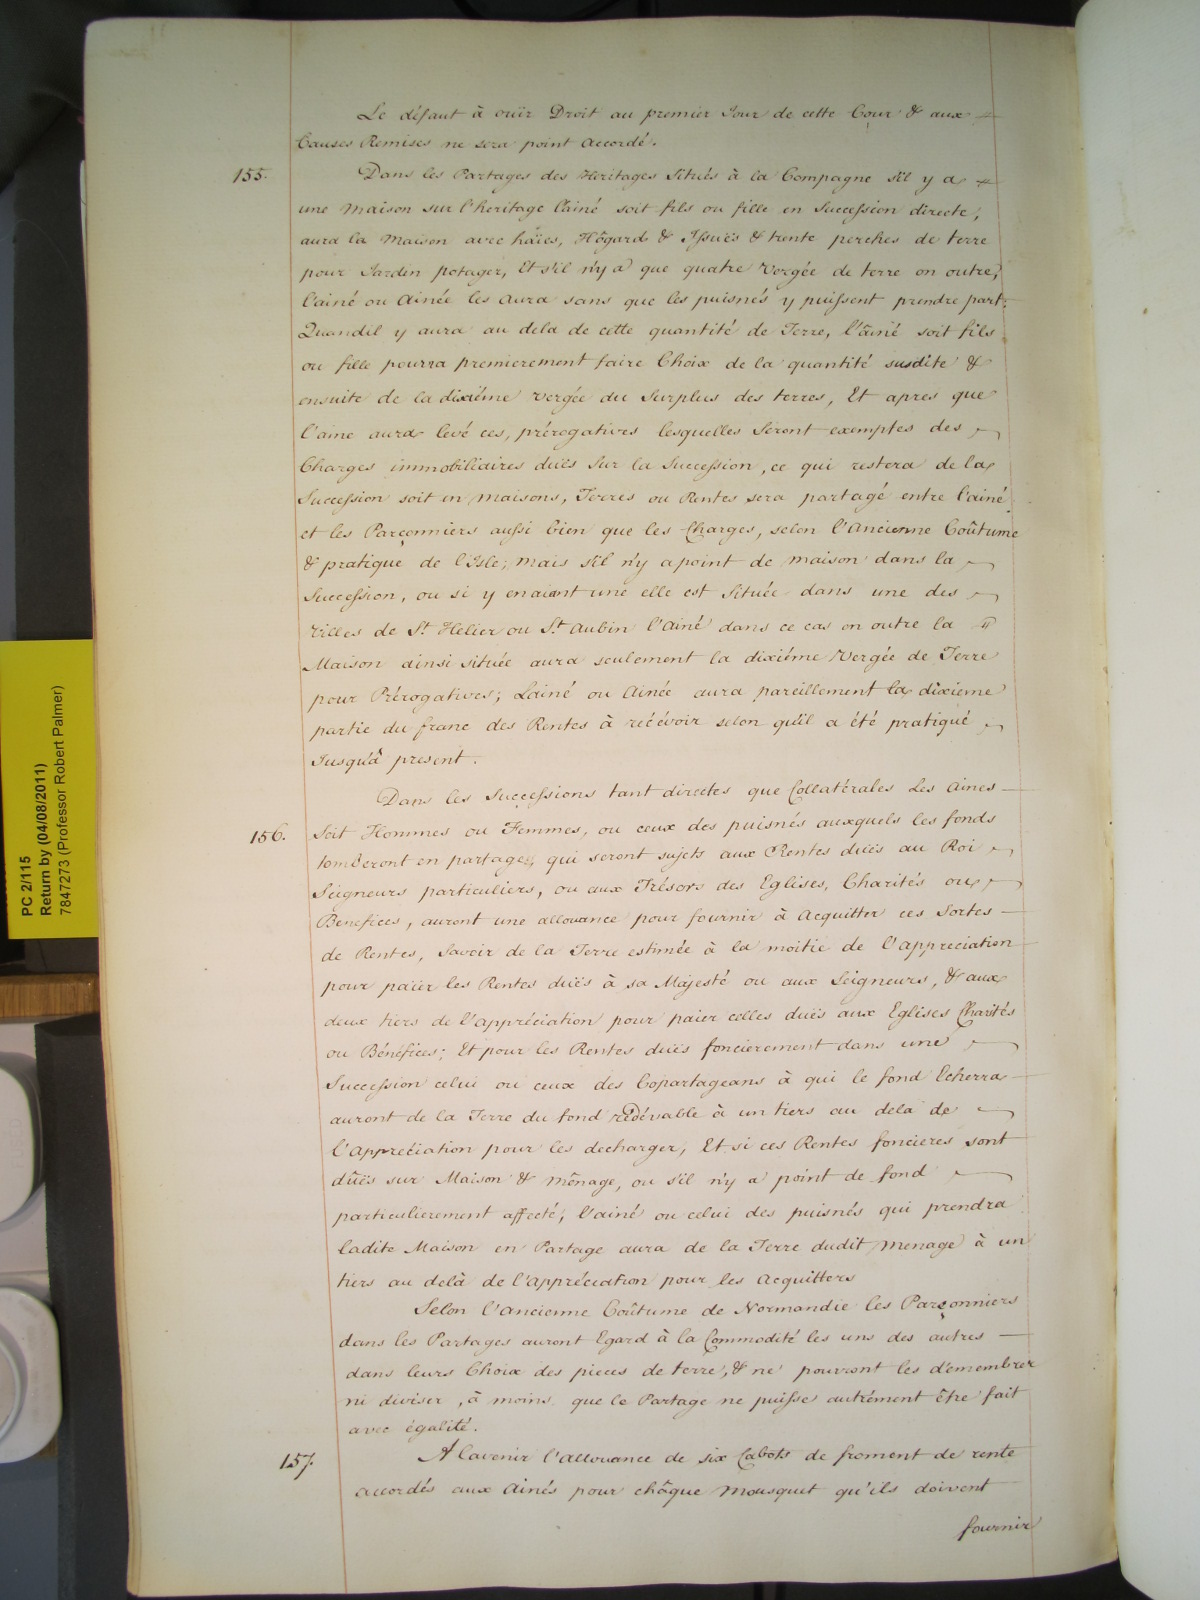 Le défaut à ouïr Droit au premier Jour de cette Cour & aux
Causes Remises ne sera point accordé.
155. Dans les Partages des Heritages Situés à la Compagne s'il y a
une Maison sur l'heritage l'ainé soit fils ou fille en Succession directe,
aura la Maison avec haïes, Hôgard & Issuës & trente perches de terre
pour Jardin potager, Et s'il n'y a que quatre Vergée de terre en outre,
l'ainé ou Ainée les aura sans que les puisnés y puissent prendre part.
Quandil y aura au dela de cette quantité de Terre, l'âiné soit fils
ou fille pourra premierement faire Choix de la quantité susdite &
ensuite de la dixiéme Vergée du Surplus des terres, Et apres que
l'aine aura levé ces, prérogatives lesquelles Seront exemptes des
Charges immobiliaires duës sur la Succession, ce qui restera de la
Succession soit en Maisons, Terres ou Rentes sera partagé entre l'ainé
et les Parçonniers aussi bien que les Charges, selon l'Ancienne Coûtume
& pratique de l'Isle; Mais s'il n'y a point de maison dans la
Succession, ou si y en aiant une elle est Située dans une des
Villes de St. Helier ou St. Aubin l'Ainé dans ce cas en outre la
Maison ainsi située aura seulement la dixiéme Vergée de Terre
pour Prérogatives; Lainé ou Ainée aura pareillement la dixieme
partie du franc des Rentes à récévoir selon qu'il a été pratiqué
Jusqu'à present.
Dans les Successions tant directes que Collatérales Les Aines
156. Soit Hommes ou Femmes, ou ceux des puisnés auxquels les fonds
tomberont en partage, qui seront sujets aux Rentes duës au Roi
Seigneurs particuliers, ou aux Trésors des Eglises, Charités ou
Benefices, auront une allouance pour fournir à Acquitter ces Sortes
de Rentes, Savoir de la Terre estimée à la moitié de l'appreciation
pour paier les Rentes duës à sa Majesté ou aux Seigneurs, & aux
deux tiers de l'appréciation pour paier celles duës aux Eglises Charités
ou Bénéfices; Et pour les Rentes duës foncierement dans une
Succession celui ou ceux des Copartageans à qui le fond Echerra
auront de la Terre du fond redévable à un tiers au dela de
l'Appréciation pour les decharger, Et si ces Rentes foncieres sont
dûës sur Maison & Mênage, ou s'il n'y a point de fond
particulierement affecté, l'ainé ou celui des puisnés qui prendra
ladite Maison en Partage aura de la Terre dudit Menage à un
tiers au delà de l'Appréciation pour les Acquitters
Selon l'Ancienne Coûtume de Normandie les Parçonniers
dans les Partages auront Egard à la Commodité les uns des autres
dans leurs Choix des pieces de terre, & ne pouvront les d'emembrer
ni diviser, à moins que le Partage ne puisse autrément être fait
avec égalité.
157. A lavenir l'allouance de six Cabots de froment de rente
accordés aux Ainés pour châque Mousquet qu'ils doivent
fournir
PC 2/115
Return by (04/08/2011)
7847273 (Professor Robert Palmer)